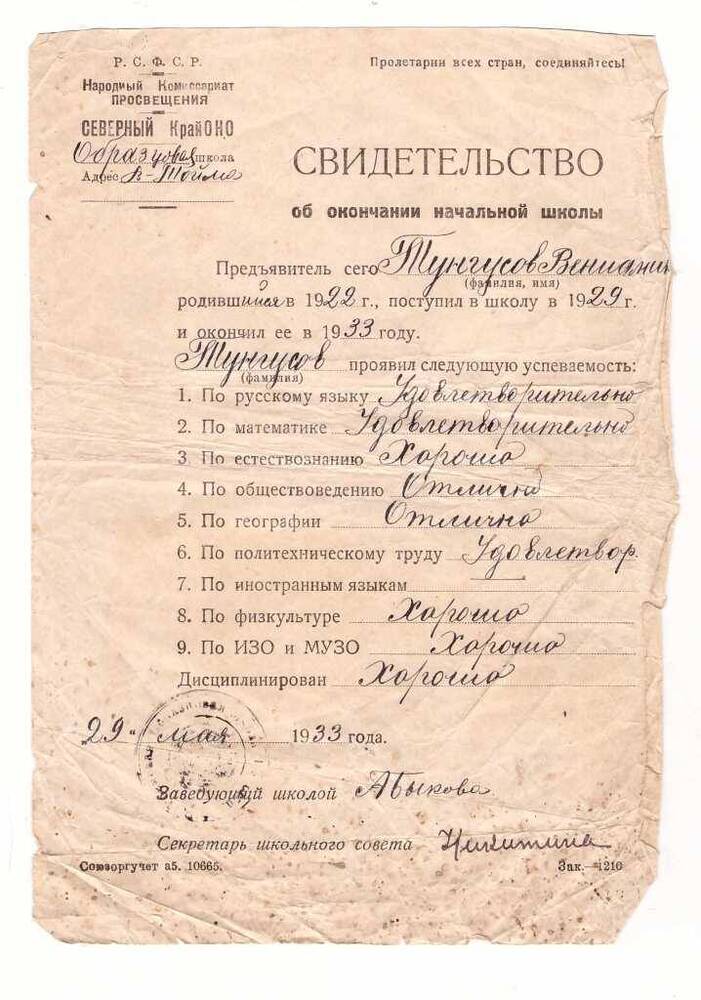 Р. С. Ф. С. Р.
Народный Комиссариат
ПРОСВЕЩЕНИЯ
СЕВЕРНЫЙ КрайОНО
Образцовая школа
Адрес В-Тойма
Пролетарии всех стран, соединяйтесь!
СВИДЕТЕЛЬСТВО
об окончании начальной школы
Предъявитель сего Тунгусов Вениамин
(фамилия, имя)
родившийся в 1922 г., поступил в школу в 1929 г.
и окончил ее в 1933 году.
Тунгусов проявил следующую успеваемость:
(фамилия)
1. По русскому языку Удовлетворительно
2. По математике Удовлетворительно
3. По естествознанию Хорошо
4. По обществоведению Отлично
5. По географии Отлично
6. По политехническому труду Удовлетвор.
7. По иностранным языкам —
8. По физкультуре Хорошо
9. По ИЗО и МУЗО Хорошо
Дисциплинирован Хорошо
„29" мая 1933 года.
Заведующий школой АБыкова
Секретарь школьного совета Никитина
Союзоргучет а5. 10665.
Зак.—1210